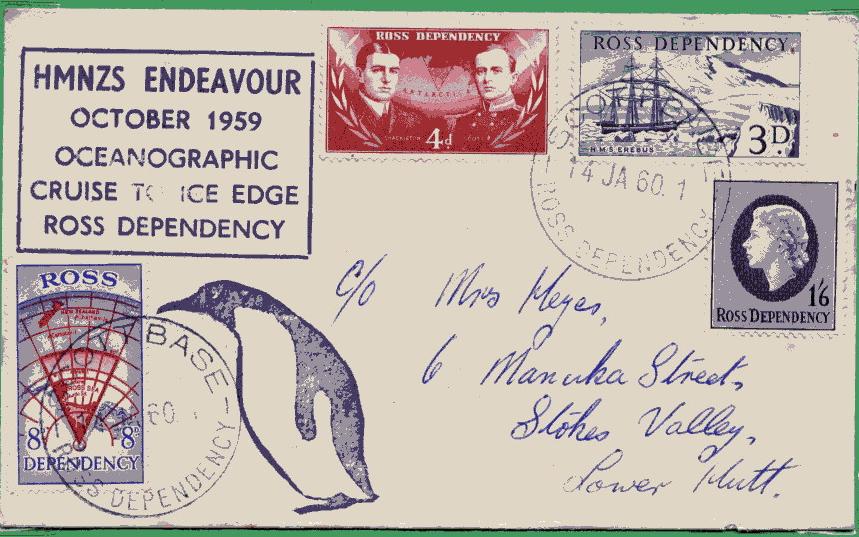 HMNZS ENDEAVOUR
OCTOBER 1959
OCEANOGRAPHIC
CRUISE TO ICE EDGE
ROSS DEPENDENCY
ROSS DEPENDENCY
ANTARCTICA
SHACKLETON 4d SCOTT
ROSS DEPENDENCY
H.M.S. EREBUS 3D.
SCOTT BASE
14 JA 60. 1
ROSS DEPENDENCY
1/6
ROSS DEPENDENCY
ROSS
NEW ZEALAND
ROSS SEA
8d 8d
DEPENDENCY
SCOTT BASE
60
ROSS DEPENDENCY
C/o Mrs Heyes,
6 Manuka Street,
Stokes Valley,
Lower Hutt.